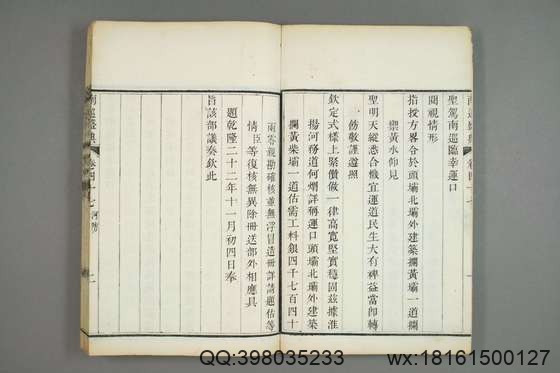 南巡盛典
聖駕南巡臨幸運口
閱視情形
指授方畧令於頭壩北壩外建築攔黃壩一道攔
禦黃水仰見
聖明天縱悉合機宜運道民生大有裨益當卽轉
飭敬謹遵照
欽定式樣上緊儹做一律高寬堅實穩固茲據淮
揚河務道何煟詳稱運口頭壩北壩外建築
攔黃柴壩一道估需工料銀四千七百四十
兩零親勘確核並無浮冒造冊詳請題估等
情臣等復核無異除冊送部外相應具
題乾隆二十二年十一月初四日奉
旨該部議奏欽此
南巡盛典 卷四十七 河防
QQ:398035233
wx:18161500127